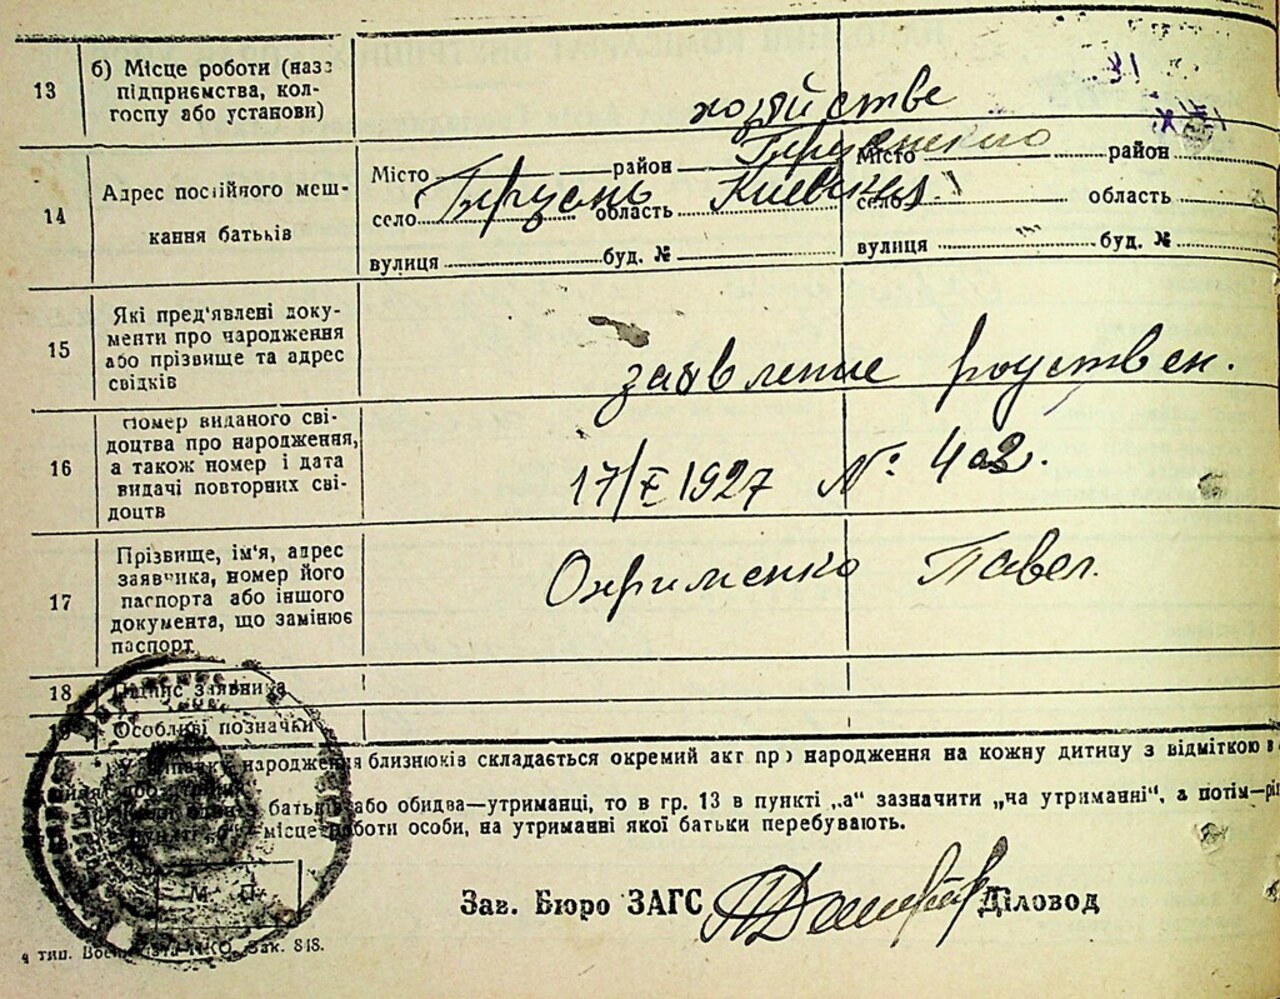 13
б) Місце роботи (назв
підприємства, кол-
госпу або установи)
хозяйстве
14
Адрес постійного меш-
кання батьків
Місто район Місто район
село область Киевская село область
вулиця буд. № вулиця буд. №
15
Які пред'явлені доку-
менти про народження
або прізвище та адрес
свідків
заявление родствен.
16
Номер виданого сві-
доцтва про народження,
а також номер і дата
видачі повторних сві-
доцтв
17/X 1927 №: 402.
17
Прізвище, ім'я, адрес
заявника, номер його
паспорта або іншого
документа, що замінює
паспорт
Охрименко Павел.
18
Підпис заявника
19
Особливі позначки
У випадку народження близнюків складається окремий акт про народження на кожну дитину з відміткою в
батьків або обидва—утриманці, то в гр. 13 в пункті „а“ зазначити „на утриманні“, а потім—
місце роботи особи, на утриманні якої батьки перебувають.
М. П.
Зав. Бюро ЗАГС Діловод
Зак. 848.